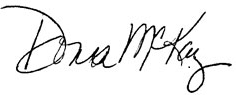 Donna McKay